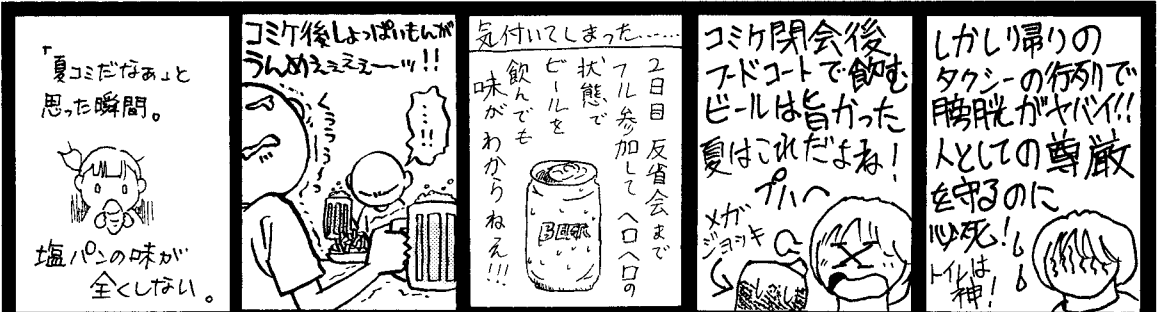 「夏コミだなぁ」と
思った瞬間。
塩パンの味が
全くしない。
コミケ後しょっぱいもんが
うんめぇぇぇぇーーッ!!
くぅぅぅぅっ
……!!
気付いてしまった……
2日目 反省会まで
フル参加して ヘロヘロの
状態で
ビールを
飲んでも
味がわからねえ!!!
BEER
コミケ閉会後
フードコートで飲む
ビールは旨かった
夏はこれだよね!
プハー
メガ
ジョッキ
しかし帰りの
タクシーの行列で
膀胱がヤバイ!!
人としての尊厳
を守るのに
必死!
トイレは
神!